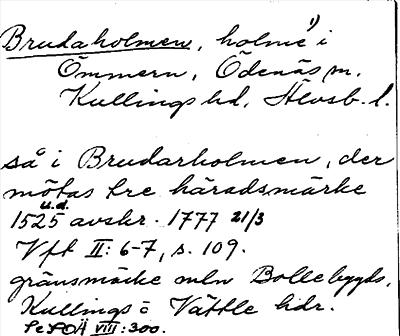 Brudaholmen, holme 1) i
Ömmern, Ödenäs sn.
Kullings hd, Älvsb. l.
så i Brudarholmen, der
mötas tre häradsmärke
1525 u.d. avskr. 1777 21/3
Vft II: 6-7, s. 109.
gränsmärke mln Bollebygds,
Kullings o Vättle hdr.
Se SOÄ VIII: 300.